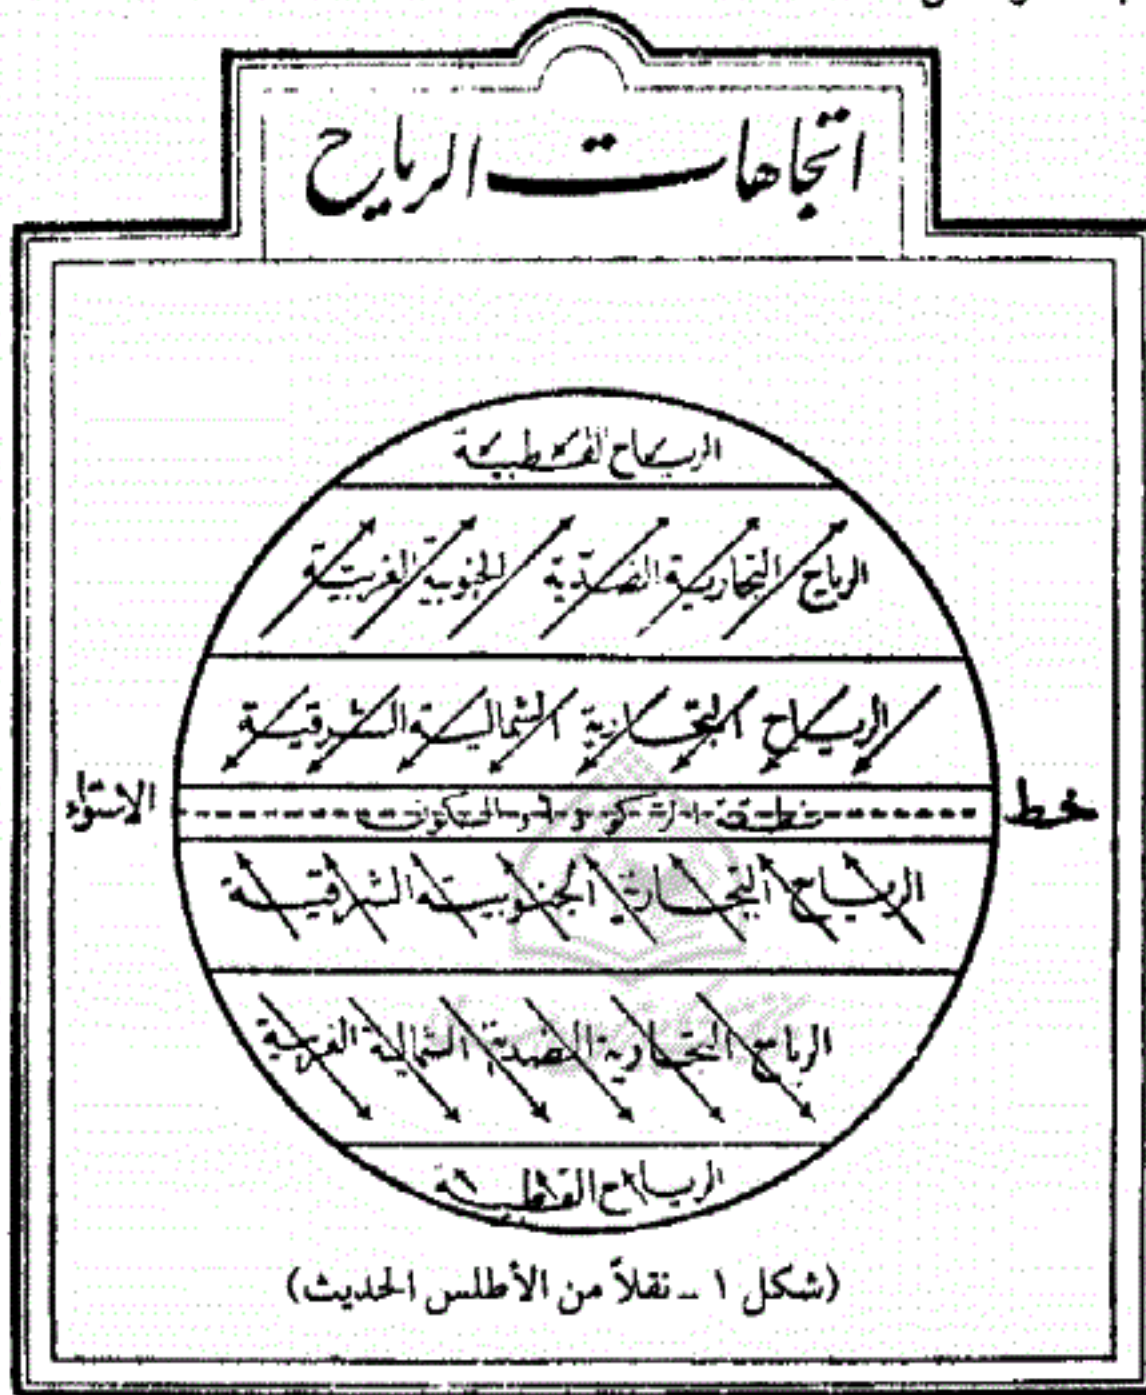 اتجاهات الرياح
الرياح القطبية
الرياح التجارية الضدية الجنوبية الغربية
الرياح التجارية الشمالية الشرقية
خط
الاستواء
الرياح التجارية الجنوبية الشرقية
الرياح التجارية الضدية الشمالية الغربية
الرياح القطبية
(شكل ١ - نقلاً من الأطلس الحديث)